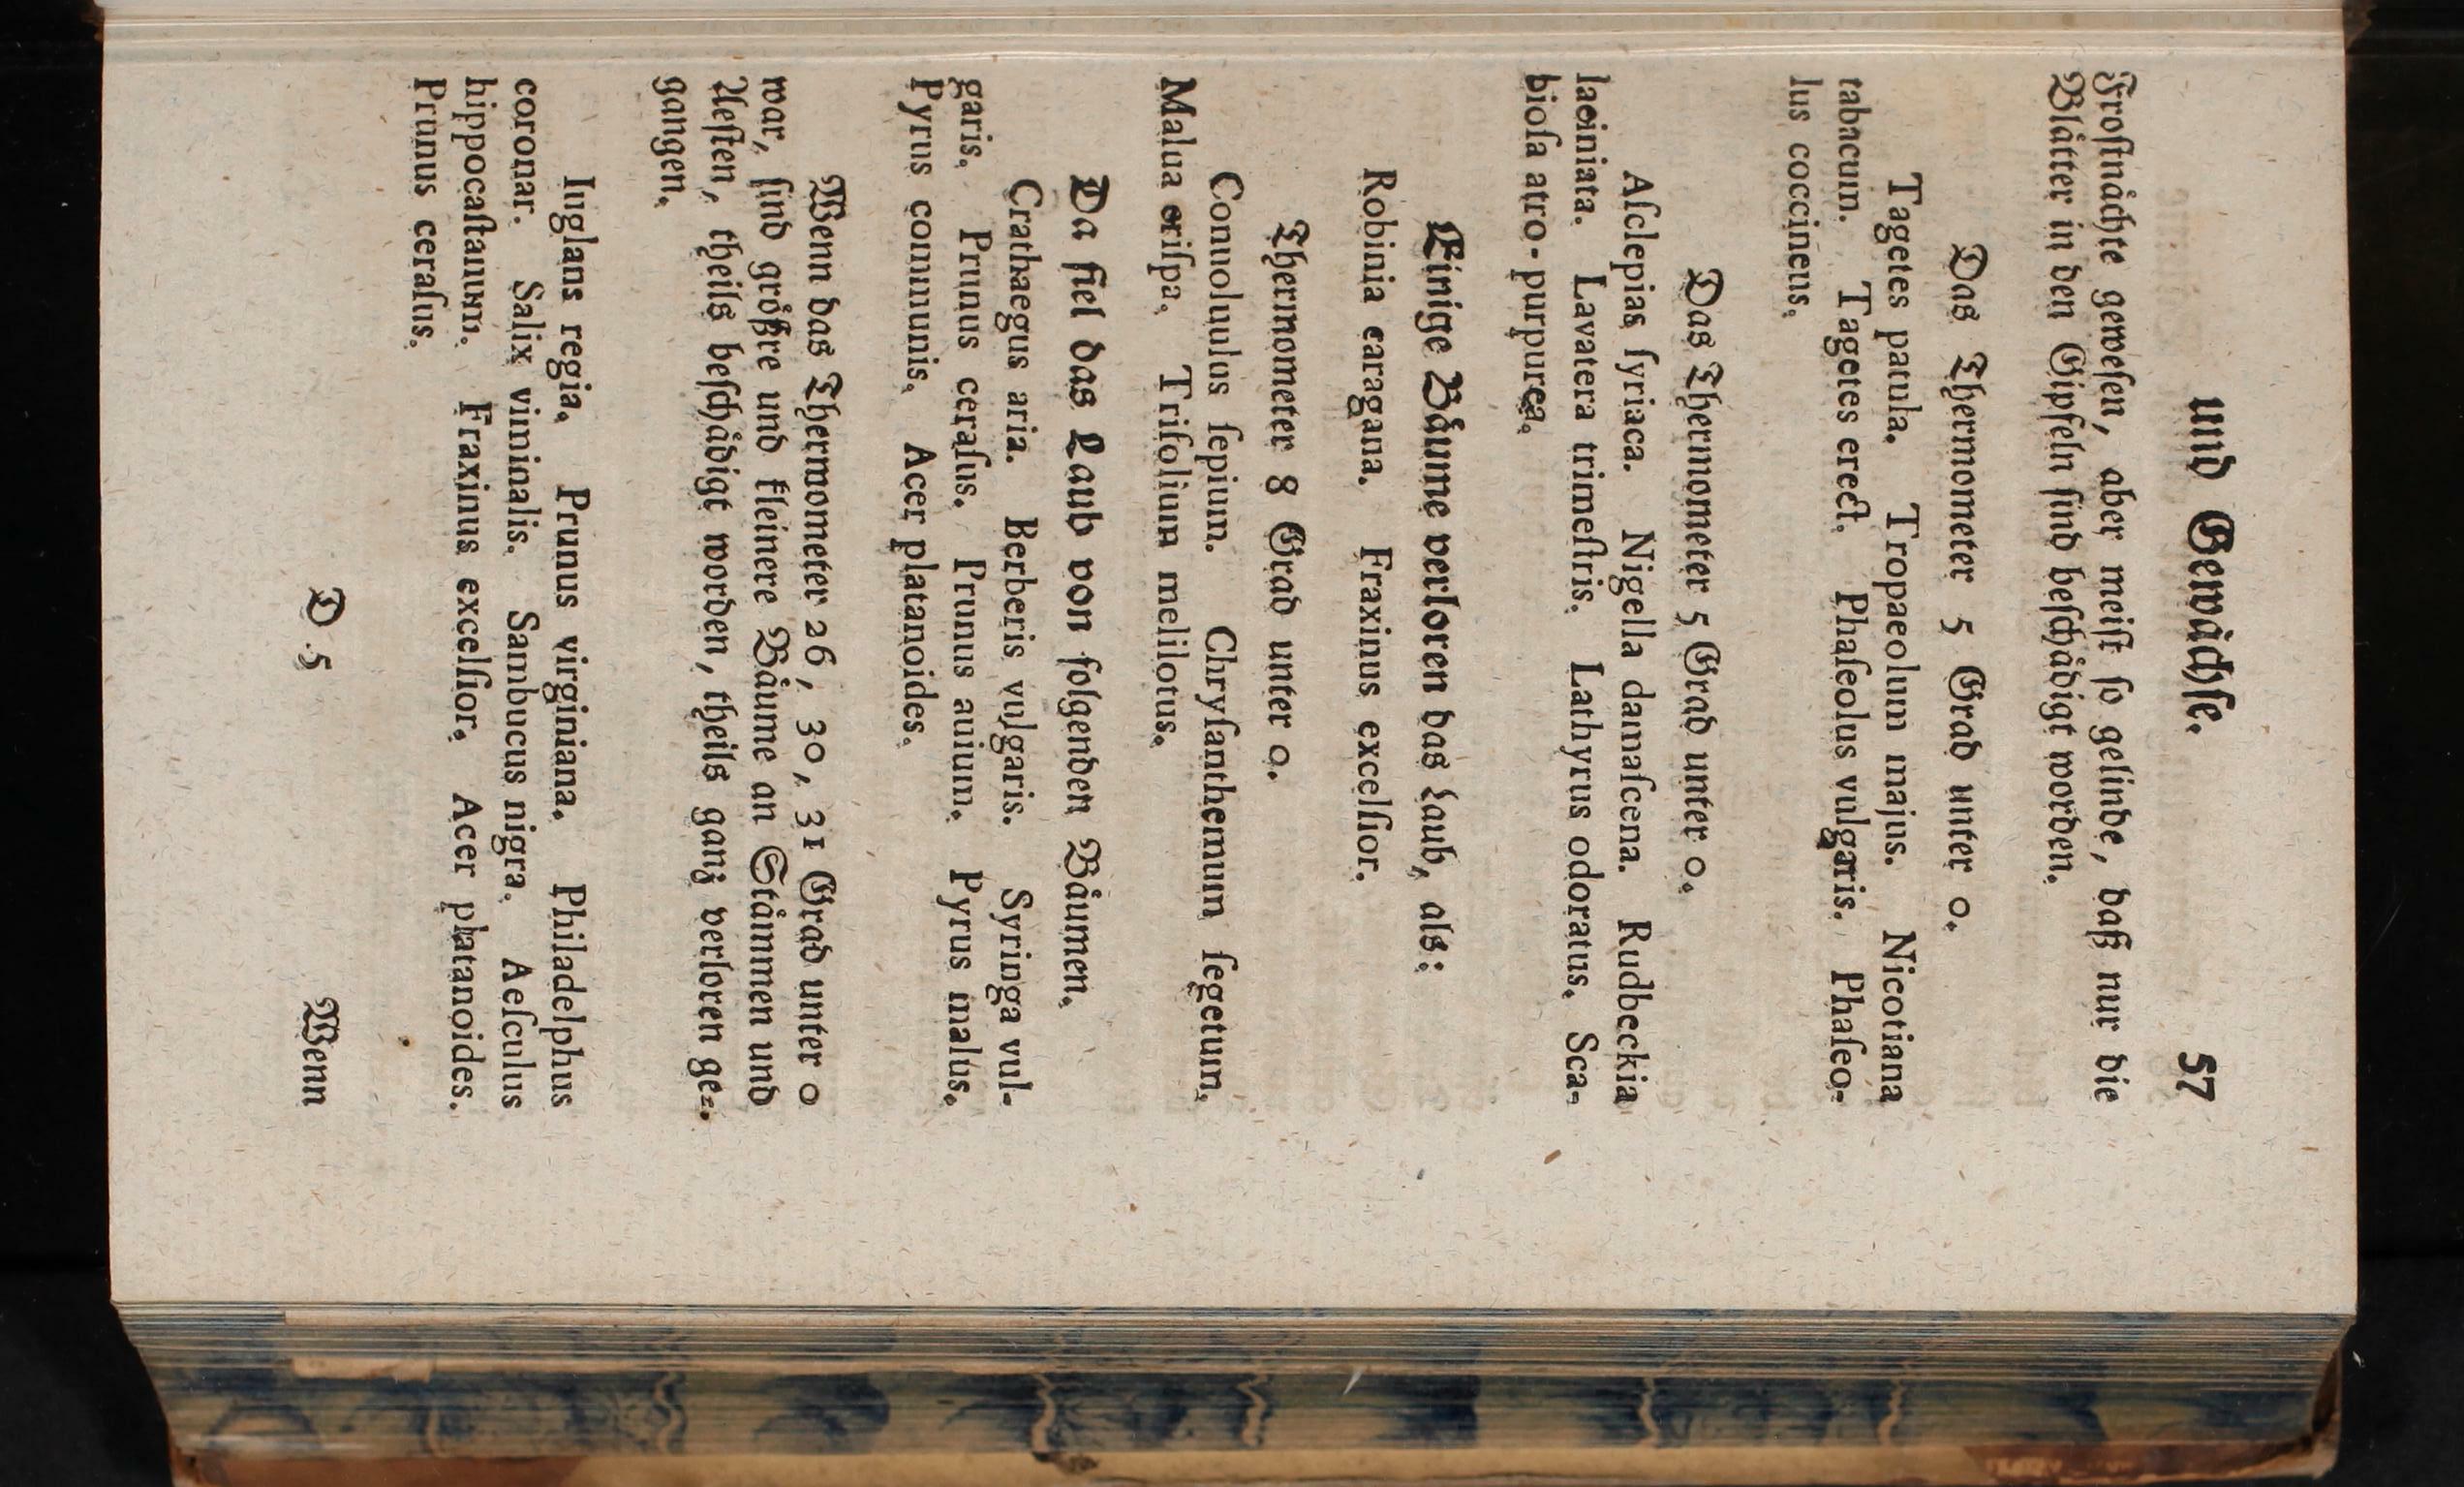 und Gewächſe. 57
Froſtnächte geweſen, aber meiſt ſo gelinde, daß nur die
Blätter in den Gipfeln ſind beſchädigt worden.
Das Thermometer 5 Grad unter 0.
Tagetes patula. Tropaeolum majus. Nicotiana
tabacum. Tagetes erect. Phaſeolus vulgaris. Phaſeo-
lus coccineus.
Das Thermometer 5 Grad unter 0.
Aſclepias ſyriaca. Nigella damaſcena. Rudbeckia
laciniata. Lavatera trimeſtris. Lathyrus odoratus. Sca-
bioſa atro-purpurea.
Einige Bäume verloren das Laub, als:
Robinia caragana. Fraxinus excelſior.
Thermometer 8 Grad unter 0.
Conuoluulus ſepium. Chryſanthemum ſegetum.
Malua criſpa. Trifolium melilotus.
Da fiel das Laub von folgenden Bäumen.
Crathaegus aria. Berberis vulgaris. Syringa vul-
garis. Prunus ceraſus. Prunus auium. Pyrus malus.
Pyrus communis. Acer platanoides.
Wenn das Thermometer 26, 30, 31 Grad unter 0
war, ſind größre und kleinere Bäume an Stämmen und
Aeſten, theils beſchädigt worden, theils ganz verloren ge-
gangen.
Iuglans regia. Prunus virginiana. Philadelphus
coronar. Salix viminalis. Sambucus nigra. Aeſculus
hippocaſtanum. Fraxinus excelſior. Acer platanoides.
Prunus ceraſus.
D 5 Wenn